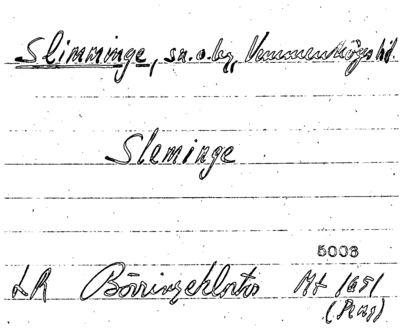 Slimminge, sn. o. by, Vemmenhögs hd.
Sleminge
5003
LR Börringekloster Mt 1651